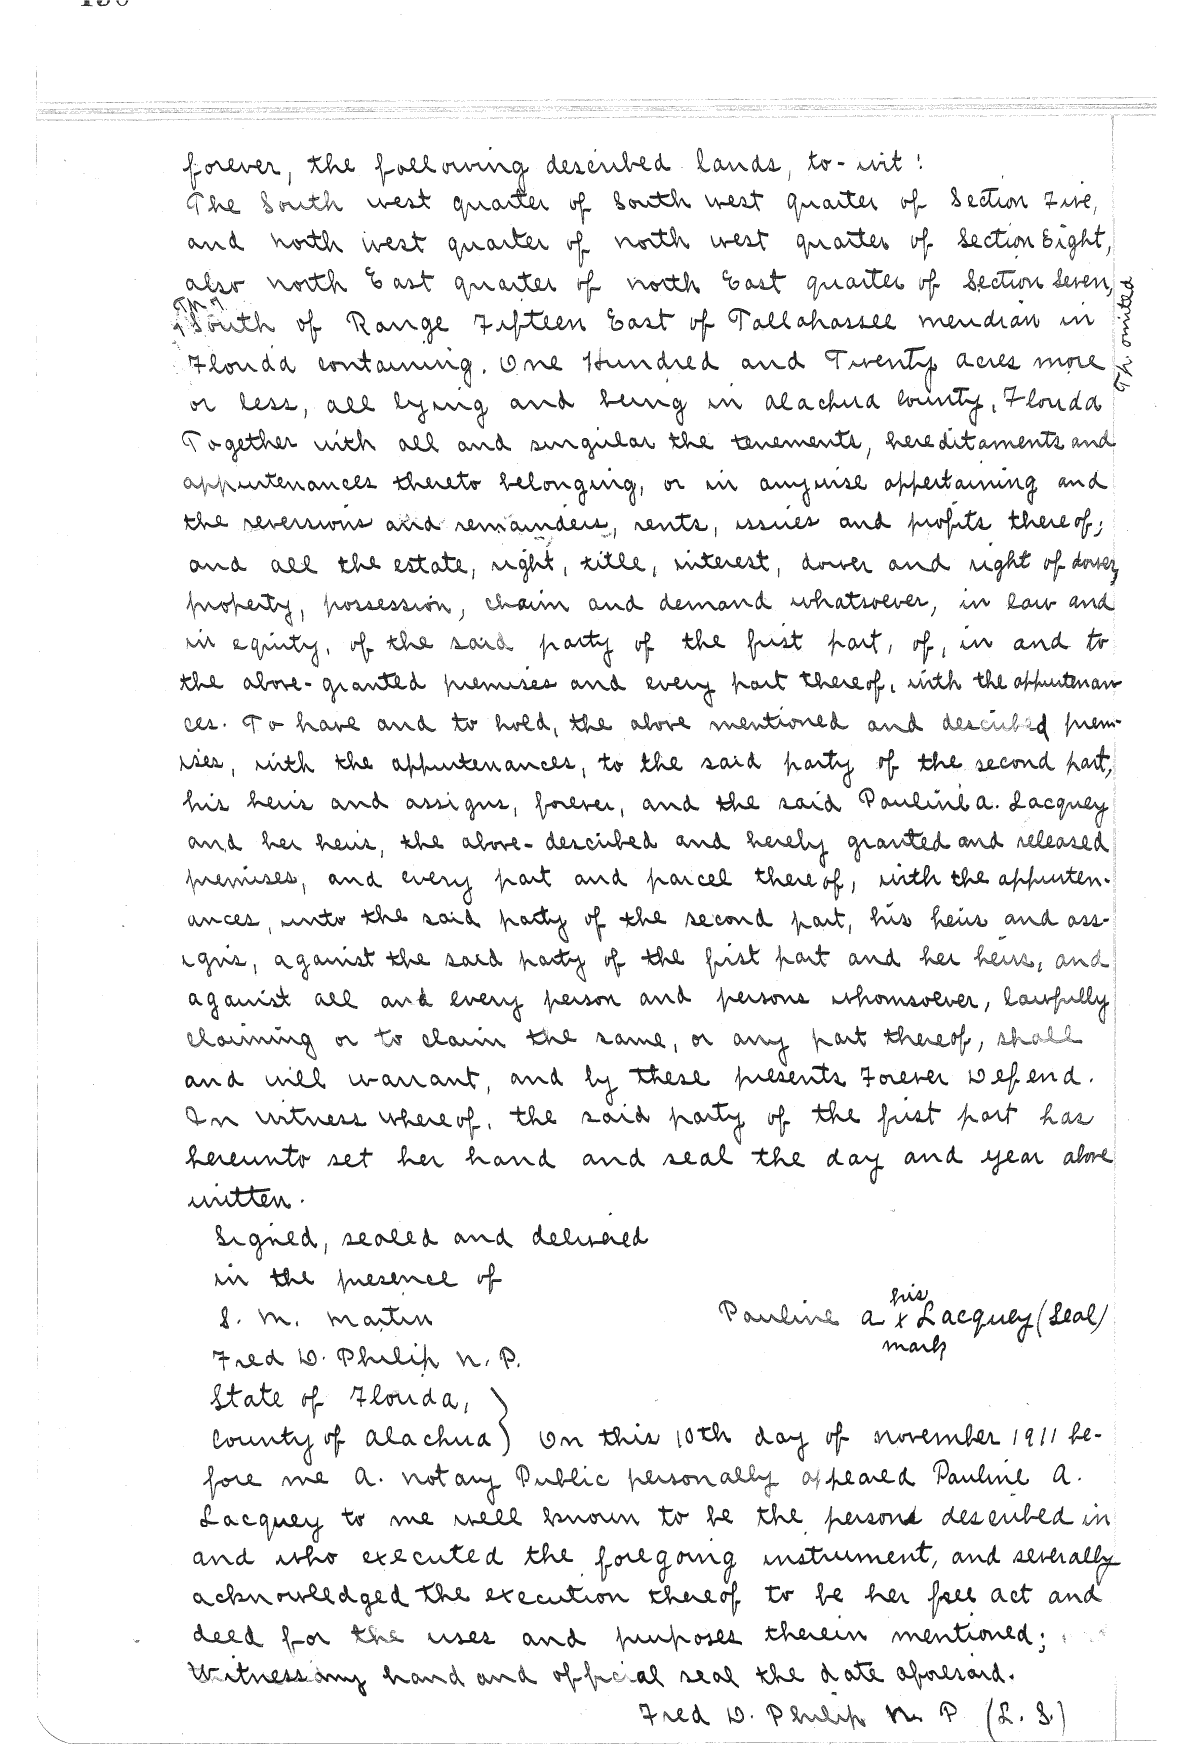 forever, the following described lands, to-wit:
The South west quarter of South west quarter of Section Five,
and north west quarter of north west quarter of Section Eight,
also north East quarter of north East quarter of Section Seven,
South of Range Fifteen East of Tallahassee meridian in
Th omited
Florida containing. One Hundred and Twenty acres more
or less, all lying and being in Alachua County, Florida
Together with all and singular the tenements, hereditaments and
appurtenances thereto belonging, or in anywise appertaining and
the reversions and remainders, rents, issues and profits thereof;
and all the estate, right, title, interest, dower and right of dower,
property, possession, claim and demand whatsoever, in law and
in equity, of the said party of the first part, of, in and to
the above-granted premises and every part thereof, with the appurtenan
ces. To have and to hold, the above mentioned and described prem-
ises, with the appurtenances, to the said party of the second part,
his heirs and assigns, forever, and the said Pauline A. Lacquey
and her heirs, the above-described and hereby granted and released
premises, and every part and parcel thereof, with the appurten-
ances, unto the said party of the second part, his heirs and ass-
igns, against the said party of the first part and her heirs, and
against all and every person and persons whomsoever, lawfully
claiming or to claim the same, or any part thereof, shall
and will warrant, and by these presents Forever Defend.
In witness whereof, the said party of the first part has
hereunto set her hand and seal the day and year above
written.
Signed, sealed and delivered
in the presence of
his
S. M. Martin Pauline A x Lacquey (Seal)
mark
Fred D. Philip N. P.
State of Florida,
County of Alachua) On this 10th day of November 1911 be-
fore me A. Notary Public personally appeared Pauline A.
Lacquey to me well known to be the person described in
and who executed the foregoing instrument, and severally
acknowledged the execution thereof to be her free act and
deed for the uses and purposes therein mentioned;
Witness my hand and official seal the date aforesaid.
Fred D. Philip N. P (L. S.)